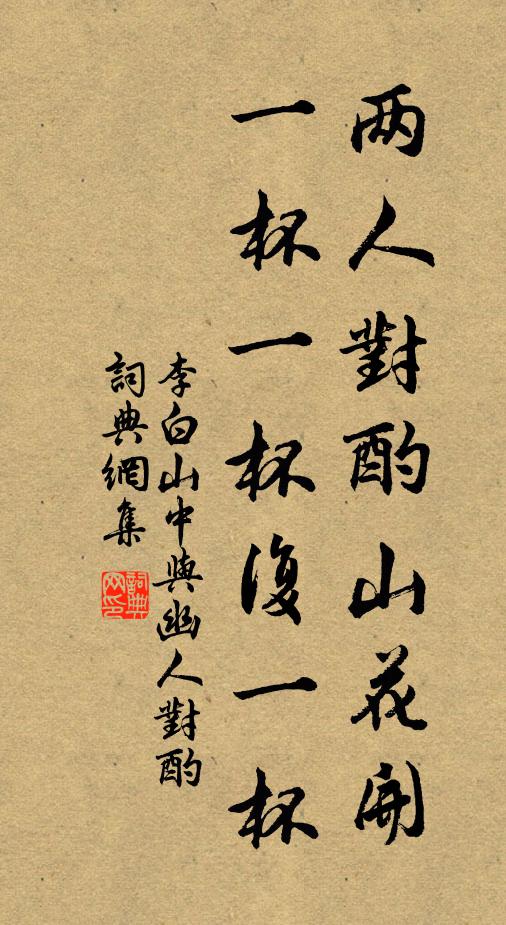 两人對酌山花開
一杯一杯復一杯
李白山中與幽人對酌
詞典網集
詞典网印